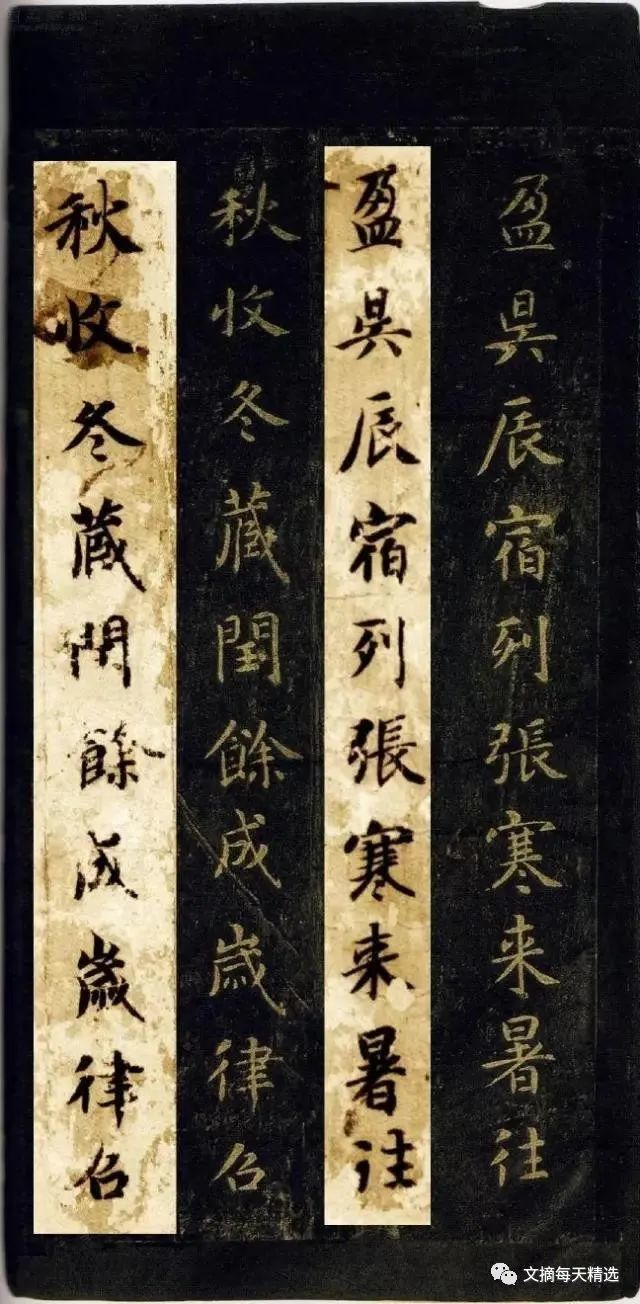 盈昃辰宿列張寒来暑往
盈昃辰宿列張寒来暑往
秋收冬藏閏餘成歲律召
秋收冬藏閏餘成歲律召
文摘每天精选